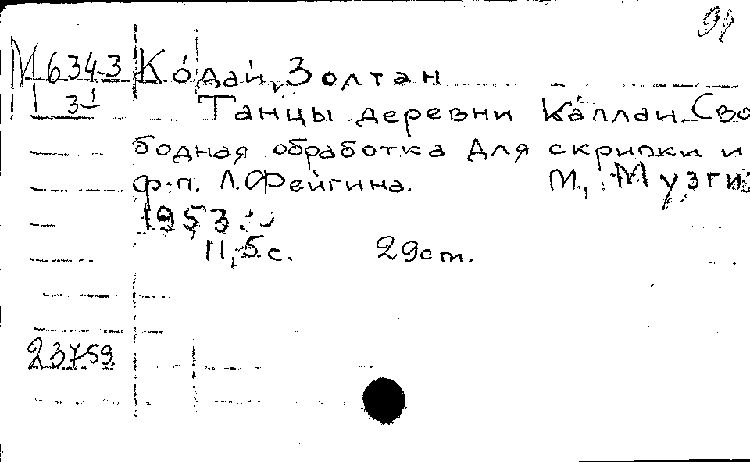 98
М 6343 Кодай, Золтан
3- Танцы деревни Каллаи Сво
бодная обработка для скрипки и
ф-п. Л. Фейгина. М., Музгиз
1953
11, 5 с. 29 см.
23759